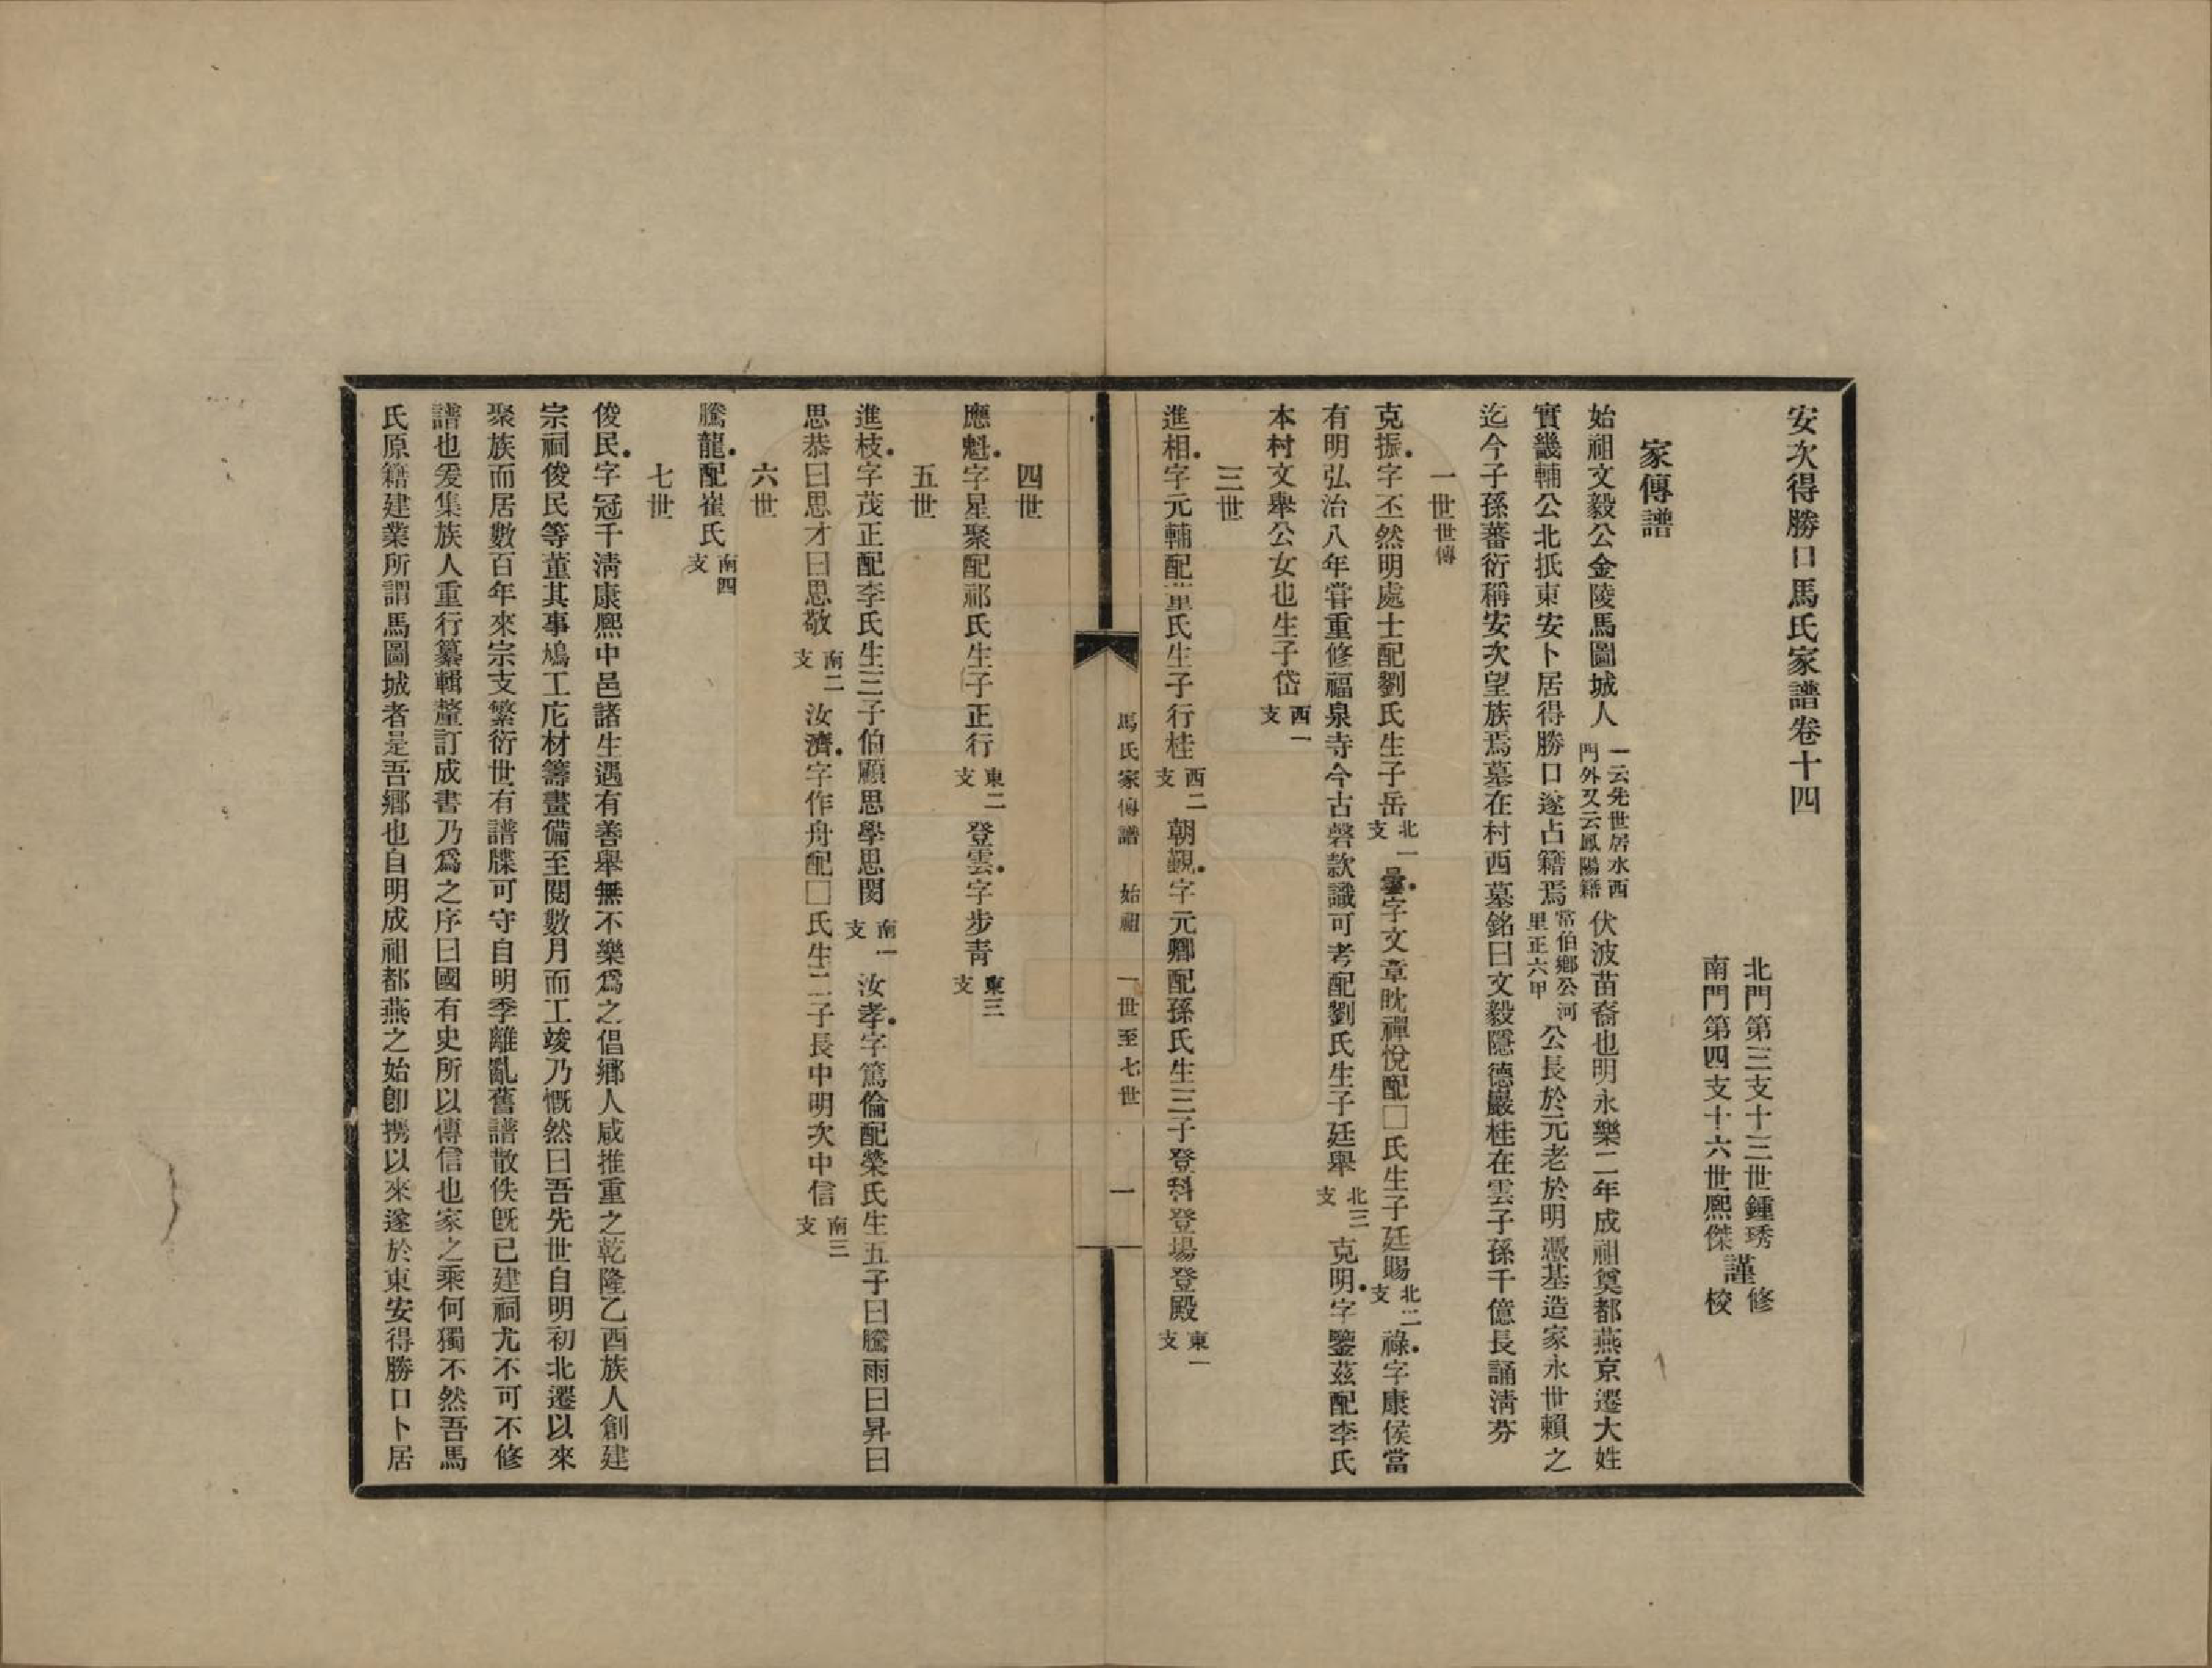 安次得勝口馬氏家譜卷十四
北門第三支十三世鍾琇
南門第四支十六世熙傑
謹
修
校
家傳譜
始祖文毅公金陵馬圖城人一云先世居水西門外又云鳳陽籍伏波苗裔也明永樂二年成祖奠都燕京遷大姓
實畿輔公北抵東安卜居得勝口遂占籍焉常伯鄉公河里正六甲公長於元老於明憑基造家永世賴之
迄今子孫蕃衍稱安次望族焉墓在村西墓銘曰文毅隱德嚴桂在雲子孫千億長誦清芬
一世世傳
克振字丕然明處士配劉氏生子岳北一支曇字文章耽禪悅配□氏生子廷賜北二支祿字康侯當
有明弘治八年嘗重修福泉寺今古磬款識可考配劉氏生子廷舉北三支克明字鑒茲配李氏
本村文舉公女也生子岱西一支
三世
進相字元輔配董氏生子行桂西二支朝覲字元卿配孫氏生三子登科登場登殿東一支
馬氏家傳譜　始祖　一世至七世　一
四世
應魁字星聚配祁氏生子正行東二支登雲字步青東三支
五世
進枝字茂正配李氏生三子伯顯思學思閔南一支汝孝字篤倫配榮氏生五子曰騰雨曰昇曰
思恭曰思才曰思敬南二支汝濟字作舟配□氏生二子長中明次中信南三支
六世
騰龍配崔氏南四支
七世
俊民字冠千清康熙中邑諸生遇有善舉無不樂為之倡鄉人咸推重之乾隆乙酉族人創建
宗祠俊民等董其事鳩工庀材籌畫備至閱數月而工竣乃慨然曰吾先世自明初北遷以來
聚族而居數百年來宗支繁衍世有譜牒可守自明季離亂舊譜散佚既已建祠尤不可不修
譜也爰集族人重行纂輯釐訂成書乃為之序曰國有史所以傳信也家之乘何獨不然吾馬
氏原籍建業所謂馬圖城者是吾鄉也自明成祖都燕之始卽攜以來遂於東安得勝口卜居